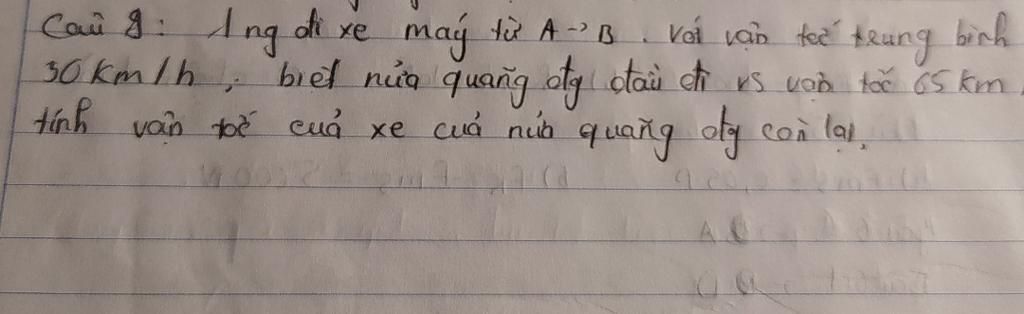 Câu 8: 1 ng đi xe máy từ A -> B. với vận tốc trung bình
30 km/h, biết nửa quãng đg đầu đi vs vận tốc 65 km,
tính vận tốc của xe của nửa quãng đg còn lại.